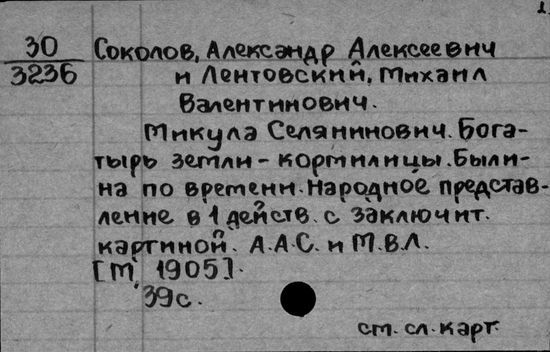 2.
30
3236
Соколов, Александр Алексеевич
и Лентовский, Михаил
Валентинович.
Микула Селянинович. Бога-
тырь земли - кормилицы. Были-
на по времени. Народное представ-
ление в 1 действ. с заключит.
картиной. А.А.С. и М.В.Л.
[М, 1905].
39 с.
см. сл. карт.